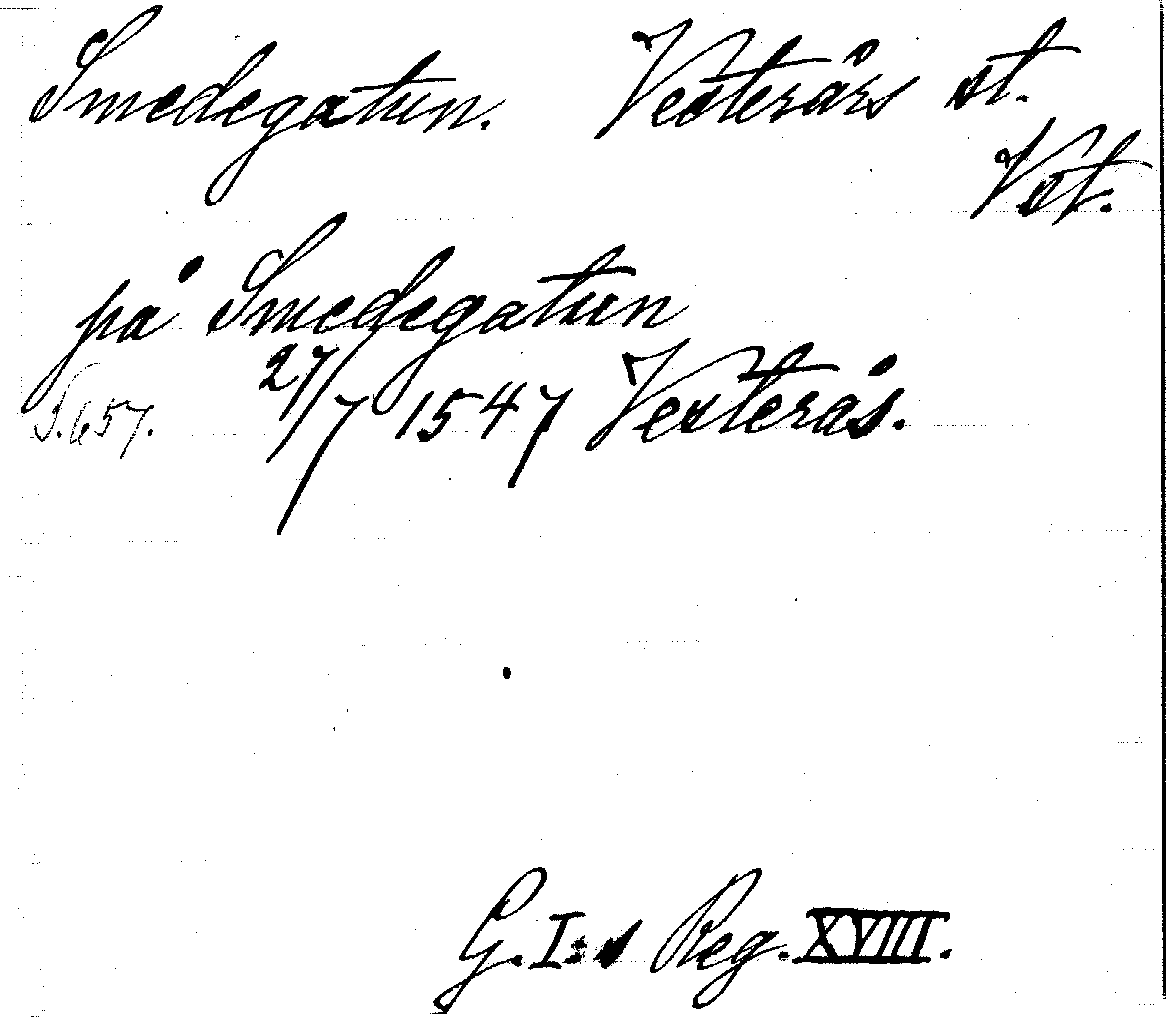 Smedegatun. Vesterårs st.
Vst.
på Smedegatun
S. 657. 27/7 1547 Vesterås.
G. I:s Reg. XVIII.